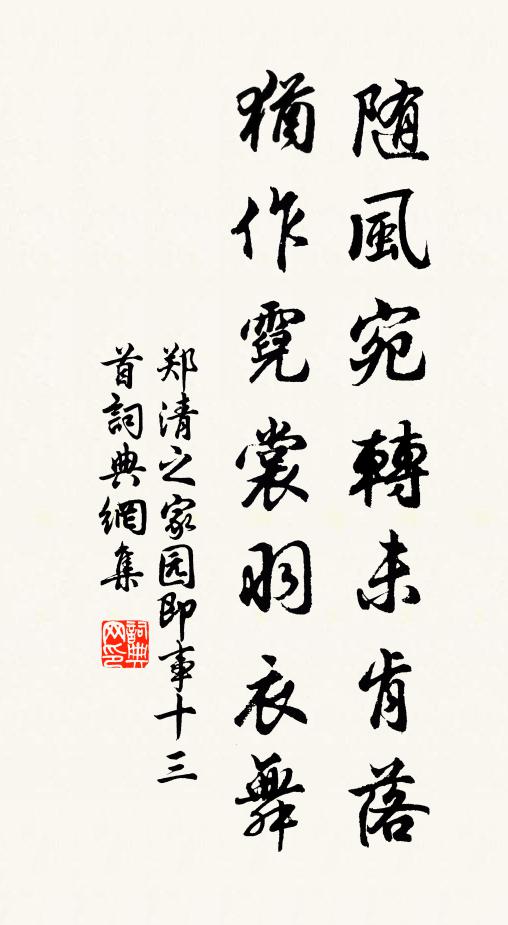 随風宛轉未肯落
猶作霓裳羽衣舞
郑清之家园即事十三
首詞典網集
詞典
网印